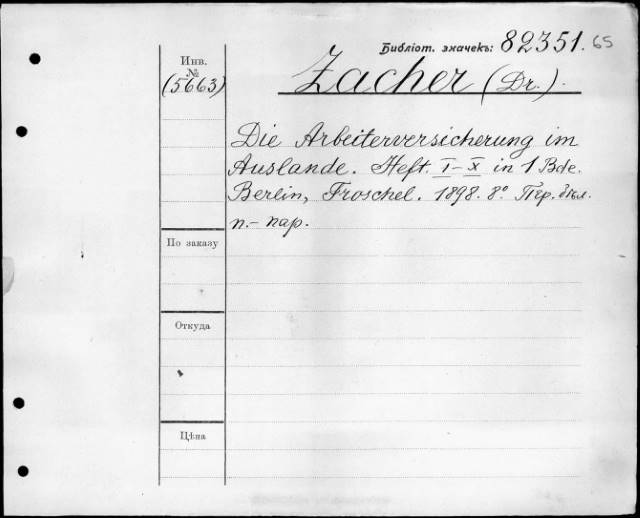 Библіот. значекъ: 82351. 65
Инв.
№
(5663)
Zacher (Dr.).
Die Arbeiterversicherung im
Auslande. Heft. I–X in 1 Bde.
Berlin, Froschel. 1898. 8º Пер.
п.- пар.
По заказу
Откуда
Цѣна